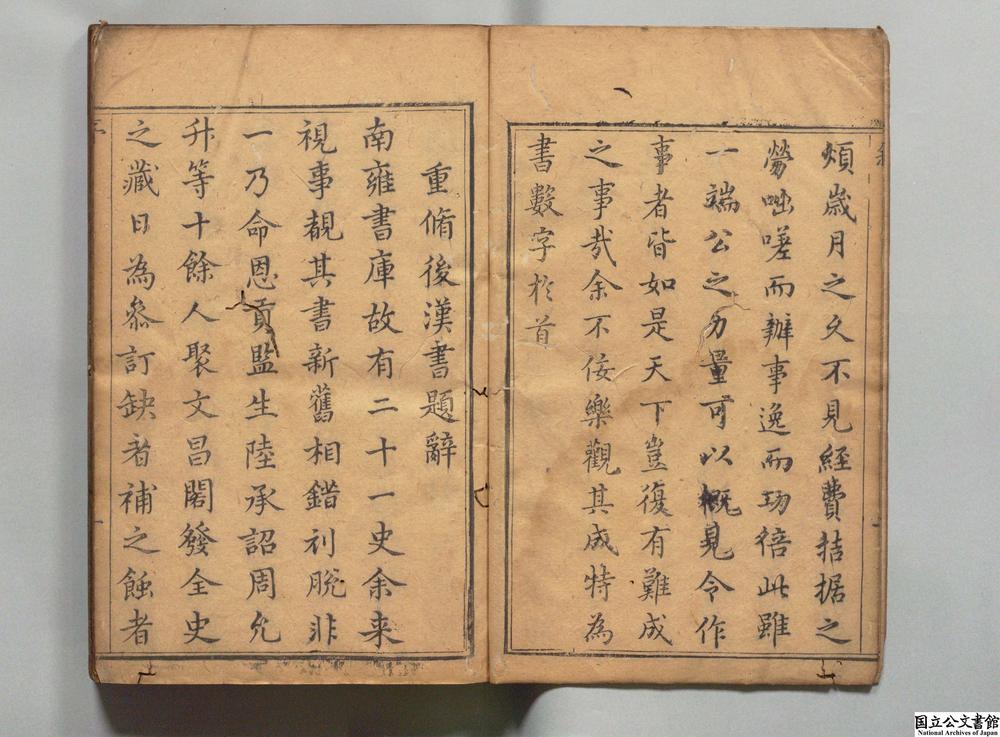 煩歲月之久不見經費拮据之
勞咄嗟而辦事逸而功倍此雖
一端公之力量可以概見令作
事者皆如是天下豈復有難成
之事哉余不佞樂觀其成特為
書數字於首
重脩後漢書題辭
南雍書庫故有二十一史余来
視事覩其書新舊相錯刓脫非
一乃命恩貢監生陸承詔周允
升等十餘人聚文昌閣發全史
之藏日為叅訂缺者補之蝕者
国立公文書館
National Archives of Japan